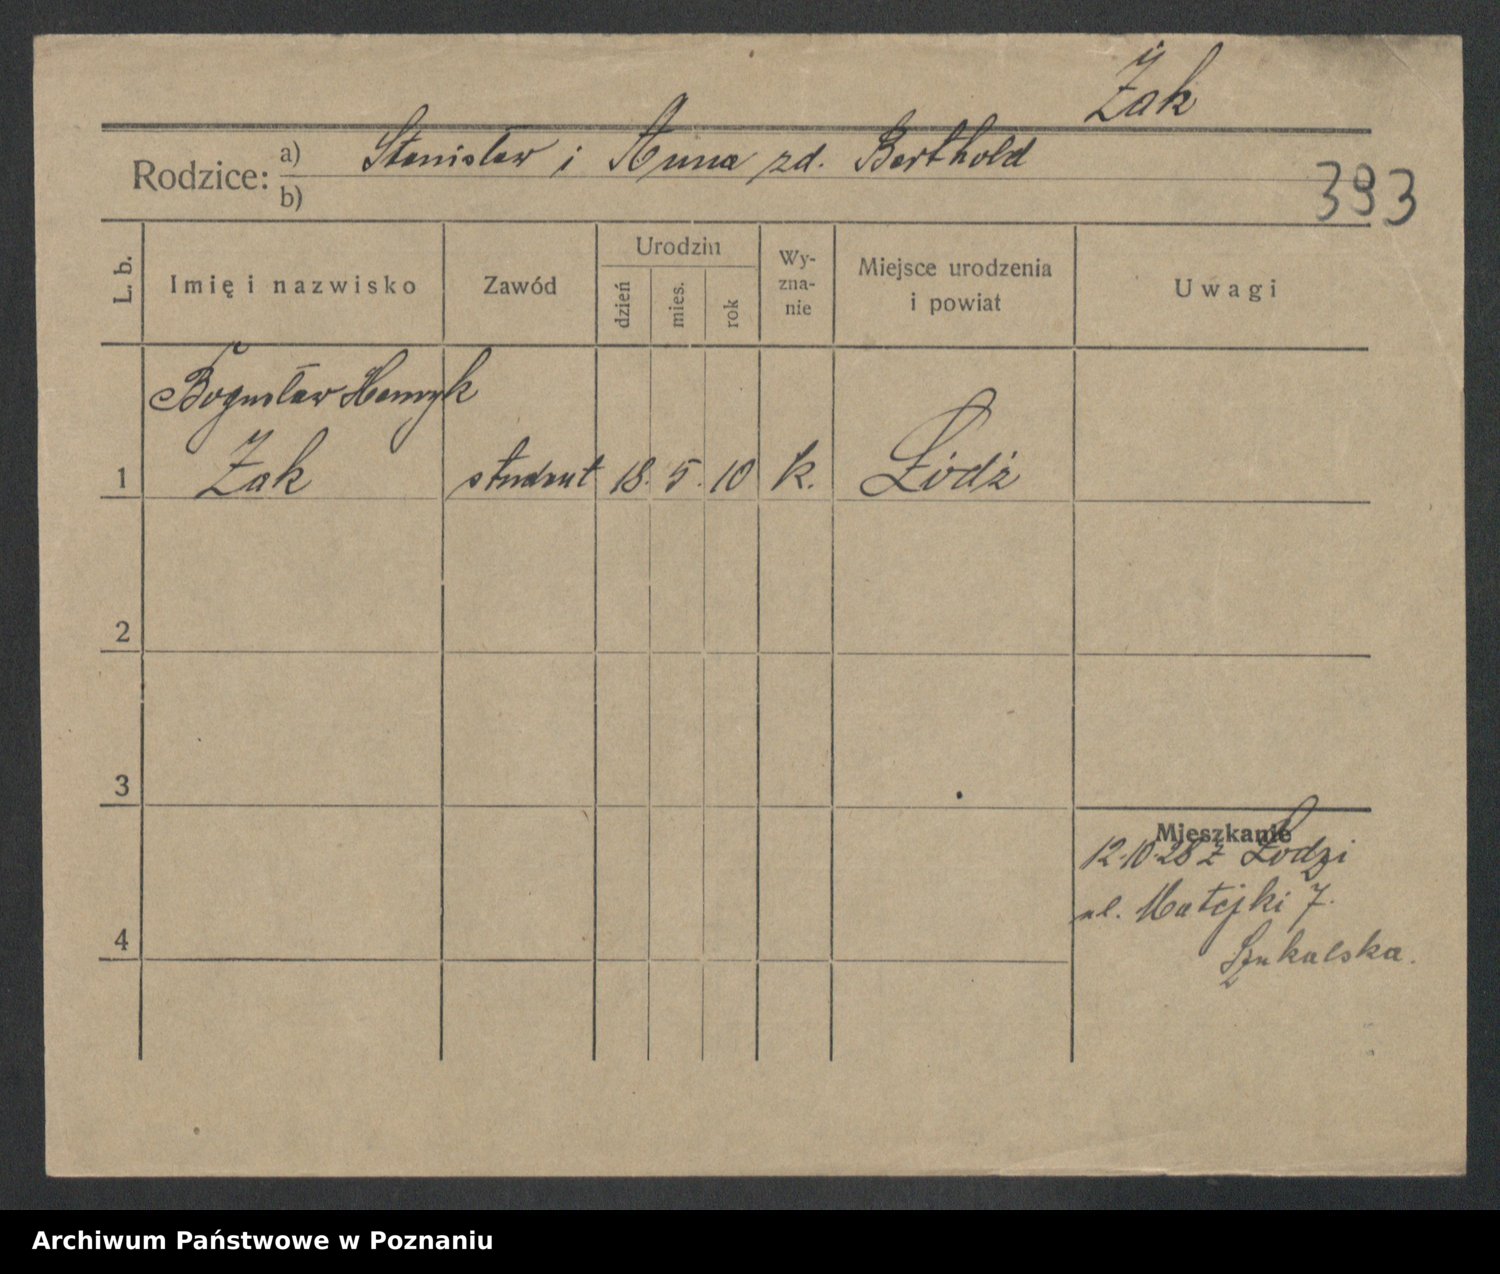 Żak
Rodzice: a) Stanisław i Anna zd. Berthold
b)
393
L. b.
Imię i nazwisko
Zawód
Urodzin
dzień
mies.
rok
Wy-
zna-
nie
Miejsce urodzenia
i powiat
Uwagi
Bogusław Henryk
1 Żak student 18. 5. 10 k. Łódź
2
3
Mieszkanie
12.10.28 z Łodzi
ul. Matejki 7.
4
Szukalska.
Archiwum Państwowe w Poznaniu